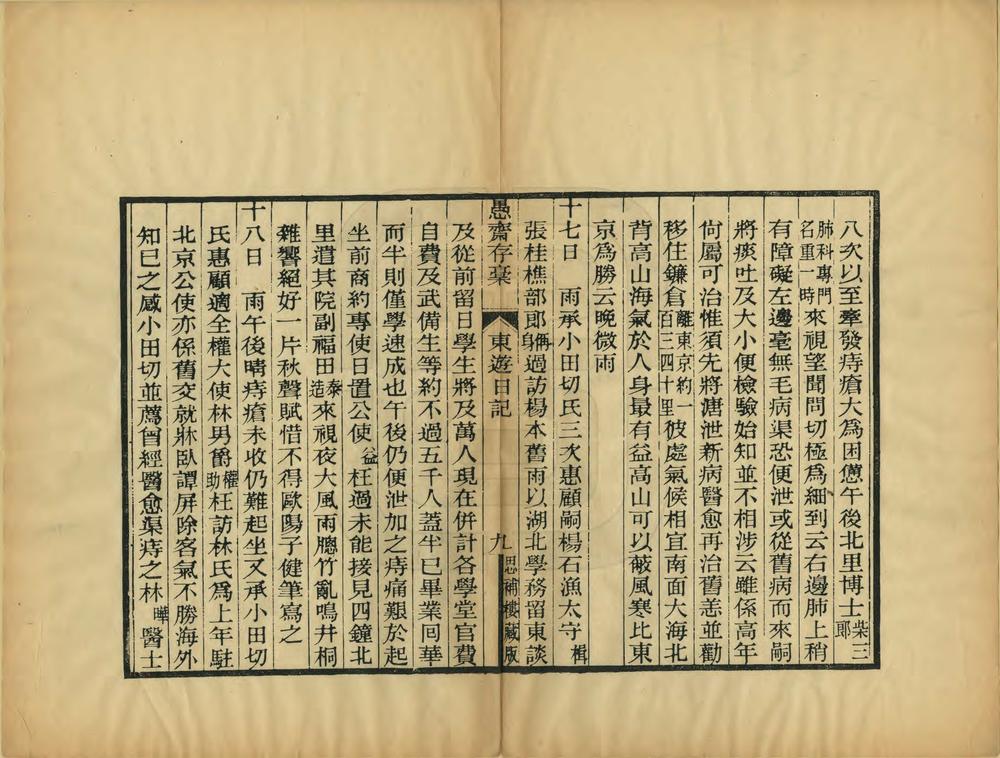 八次以至牽發痔瘡大爲困憊午後北里博士柴三郎
肺科專門名重一時來視望聞問切極爲細到云右邊肺上稍
有障礙左邊毫無毛病渠恐便泄或從舊病而來嗣
將痰吐及大小便檢驗始知並不相涉云雖係高年
尙屬可治惟須先將溏泄新病醫愈再治舊恙並勸
移住鐮倉離東京約一百三四十里彼處氣候相宜南面大海北
背高山海氣於人身最有益高山可以蔽風寒比東
京爲勝云晚微雨
十七日　雨承小田切氏三次惠顧嗣楊石漁太守楫
張桂樵部郎偁身過訪楊本舊雨以湖北學務留東談
愚齋存稾　東遊日記　九　思補樓藏版
及從前留日學生將及萬人現在併計各學堂官費
自費及武備生等約不過五千人蓋半已畢業囘華
而半則僅學速成也午後仍便泄加之痔痛艱於起
坐前商約專使日置公使益枉過未能接見四鐘北
里遣其院副福田泰造來視夜大風雨牕竹亂鳴井桐
雜響絕好一片秋聲賦惜不得歐陽子健筆寫之
十八日　雨午後晴痔瘡未收仍難起坐又承小田切
氏惠顧適全權大使林男爵權助枉訪林氏爲上年駐
北京公使亦係舊交就牀臥譚屏除客氣不勝海外
知已之感小田切並薦曾經醫愈渠痔之林曄醫士